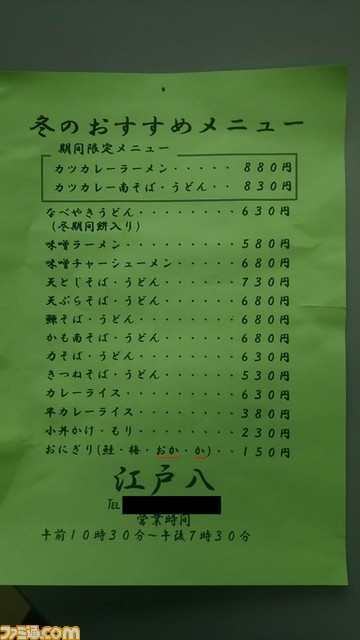 冬のおすすめメニュー
期間限定メニュー
カツカレーラーメン・・・・・880円
カツカレー南そば・うどん・・830円
なべやきうどん・・・・・・・・630円
(冬期間餅入り)
味噌ラーメン・・・・・・・・・580円
味噌チャーシューメン・・・・・680円
天とじそば・うどん・・・・・・730円
天ぷらそば・うどん・・・・・・680円
鰊そば・うどん・・・・・・・・680円
かも南そば・うどん・・・・・・680円
力そば・うどん・・・・・・・・630円
きつねそば・うどん・・・・・・530円
カレーライス・・・・・・・・・630円
半カレーライス・・・・・・・・380円
小丼かけ・もり・・・・・・・・230円
おにぎり(鮭・梅・おか・か)・・150円
江戸八
TEL
営業時間
午前10時30分～午後7時30分
ファミ通.com